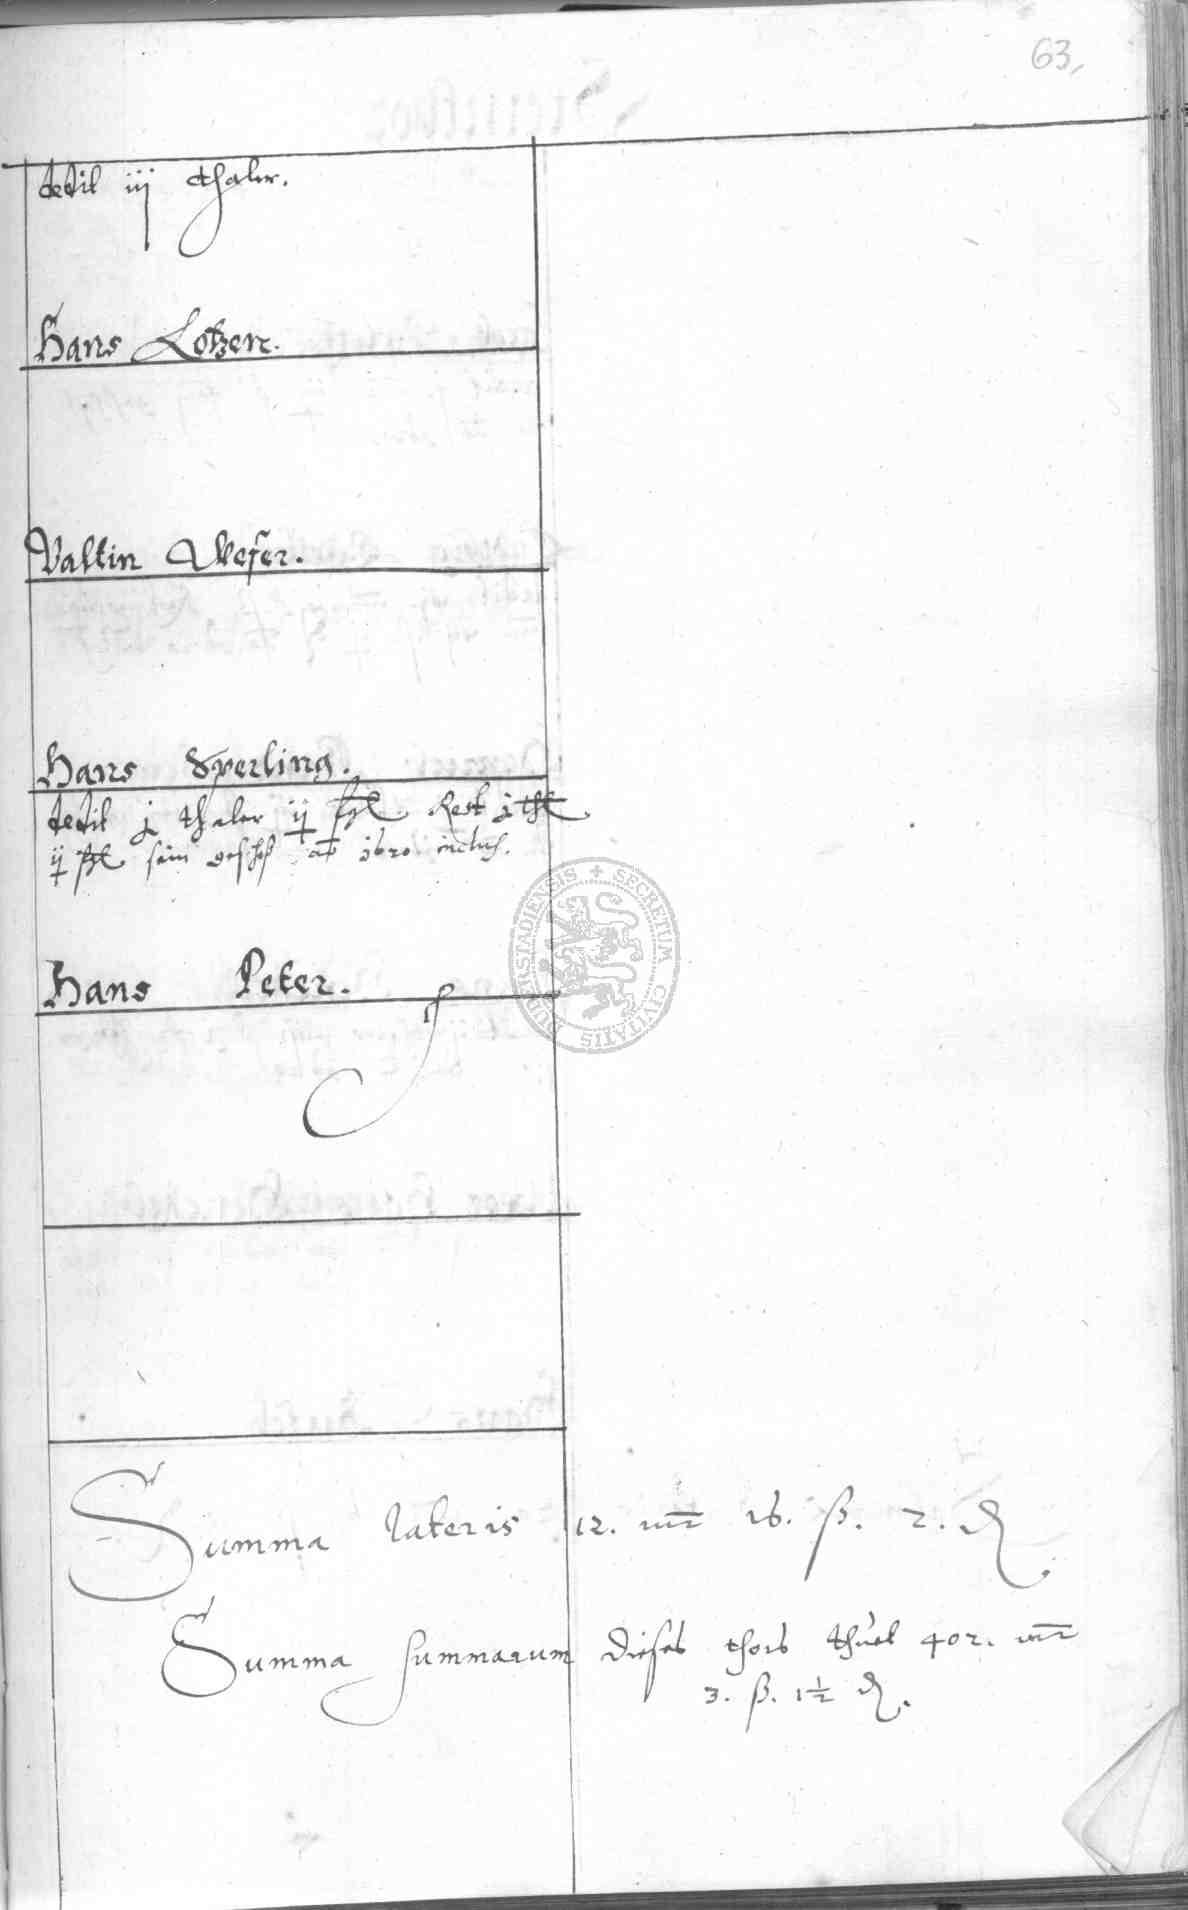 63,
dedit iij thaler.
Hans Lotzen.
Valtin Weser.
Hans Sperling.
dedit j thaler ij Rest j
ij sein geschoß ab 1620 inclus.
Hans Peter.
Summa lateris 12. mr 16. ß. 2. ₰
Summa summarum dieses thors thuet 402. mr
3. ß. 1½ ₰.
SECRETUM CIVITATIS DUDERSTADIENSIS